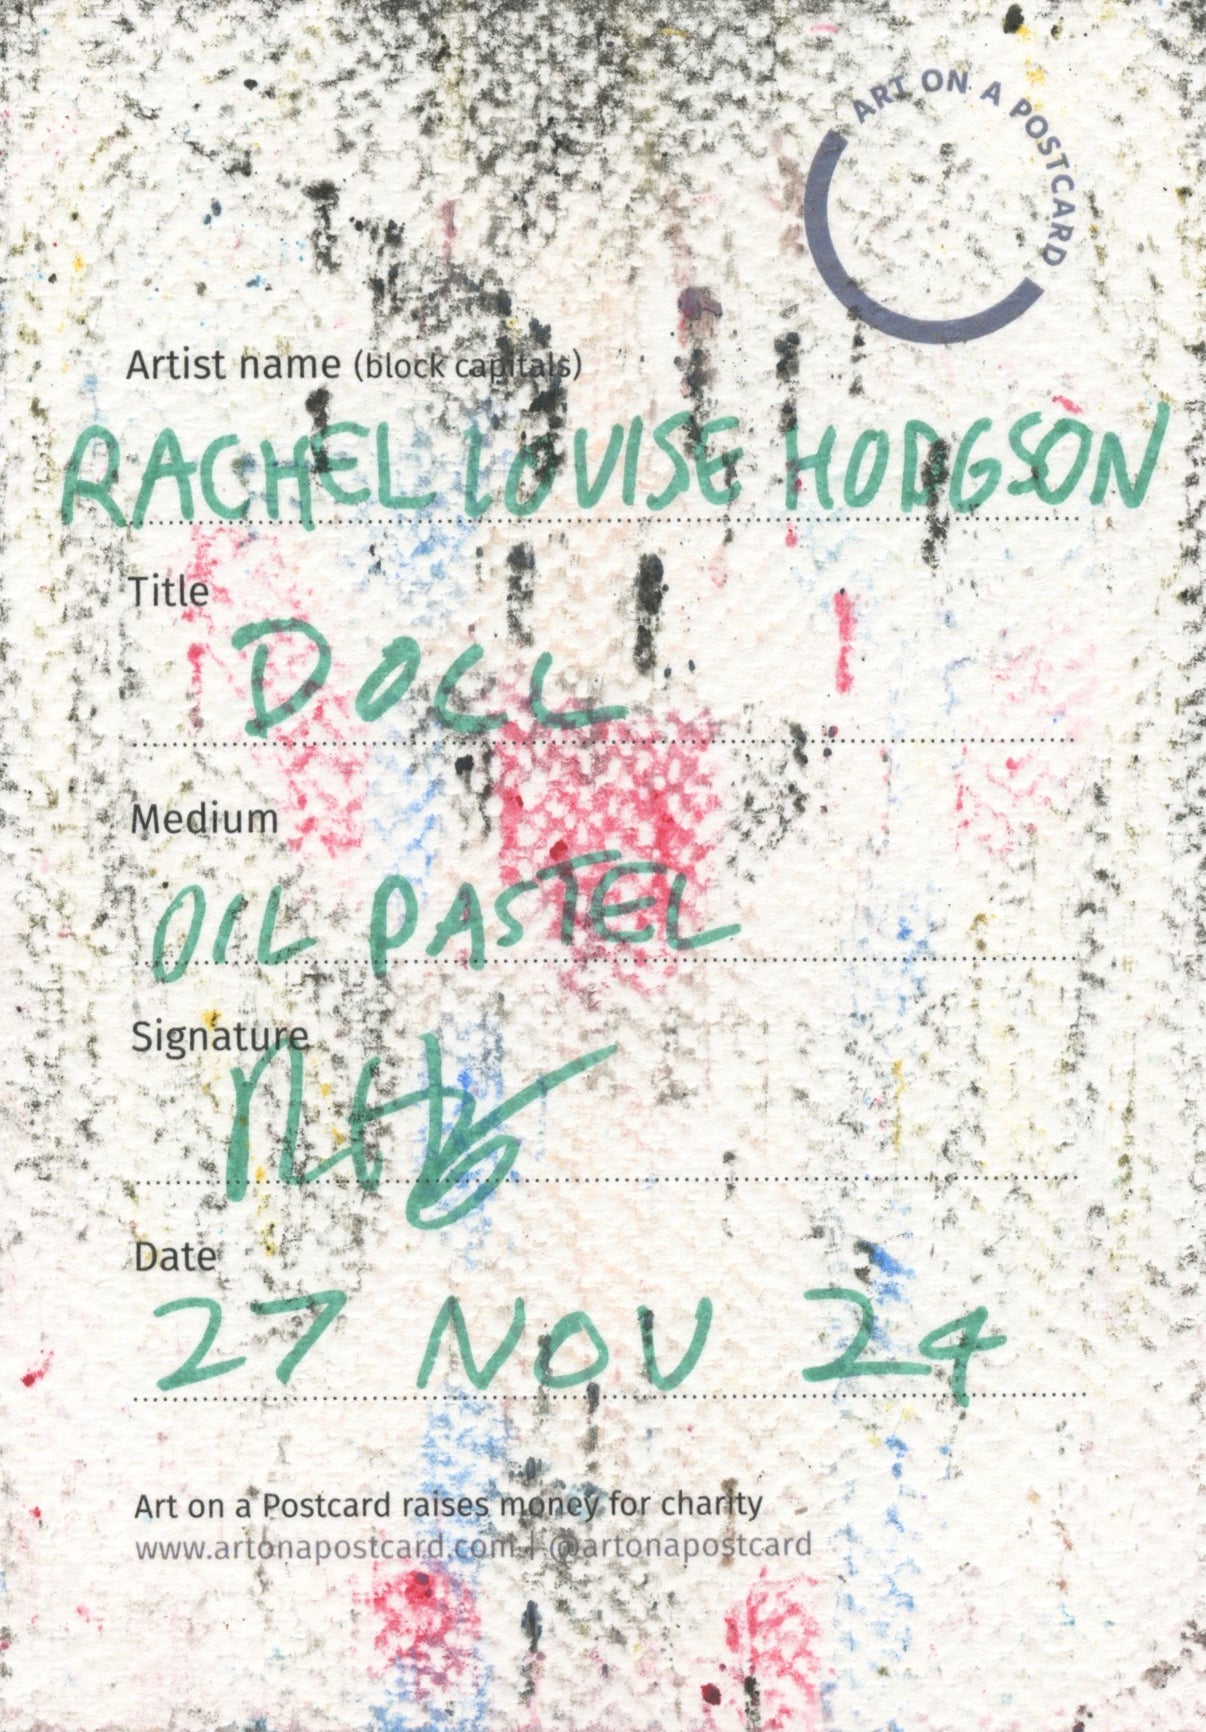 ART ON A POSTCARD
Artist name (block capitals)
RACHEL LOUISE HODGSON
Title
DOLL
Medium
OIL PASTEL
Signature
Date
27 NOV 24
Art on a Postcard raises money for charity
www.artonapostcard.com | @artonapostcard